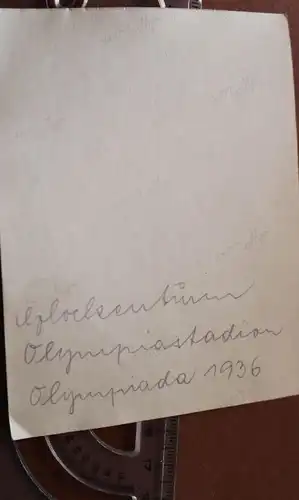 Glockenturm
Olympiastadion
Olympiada 1936